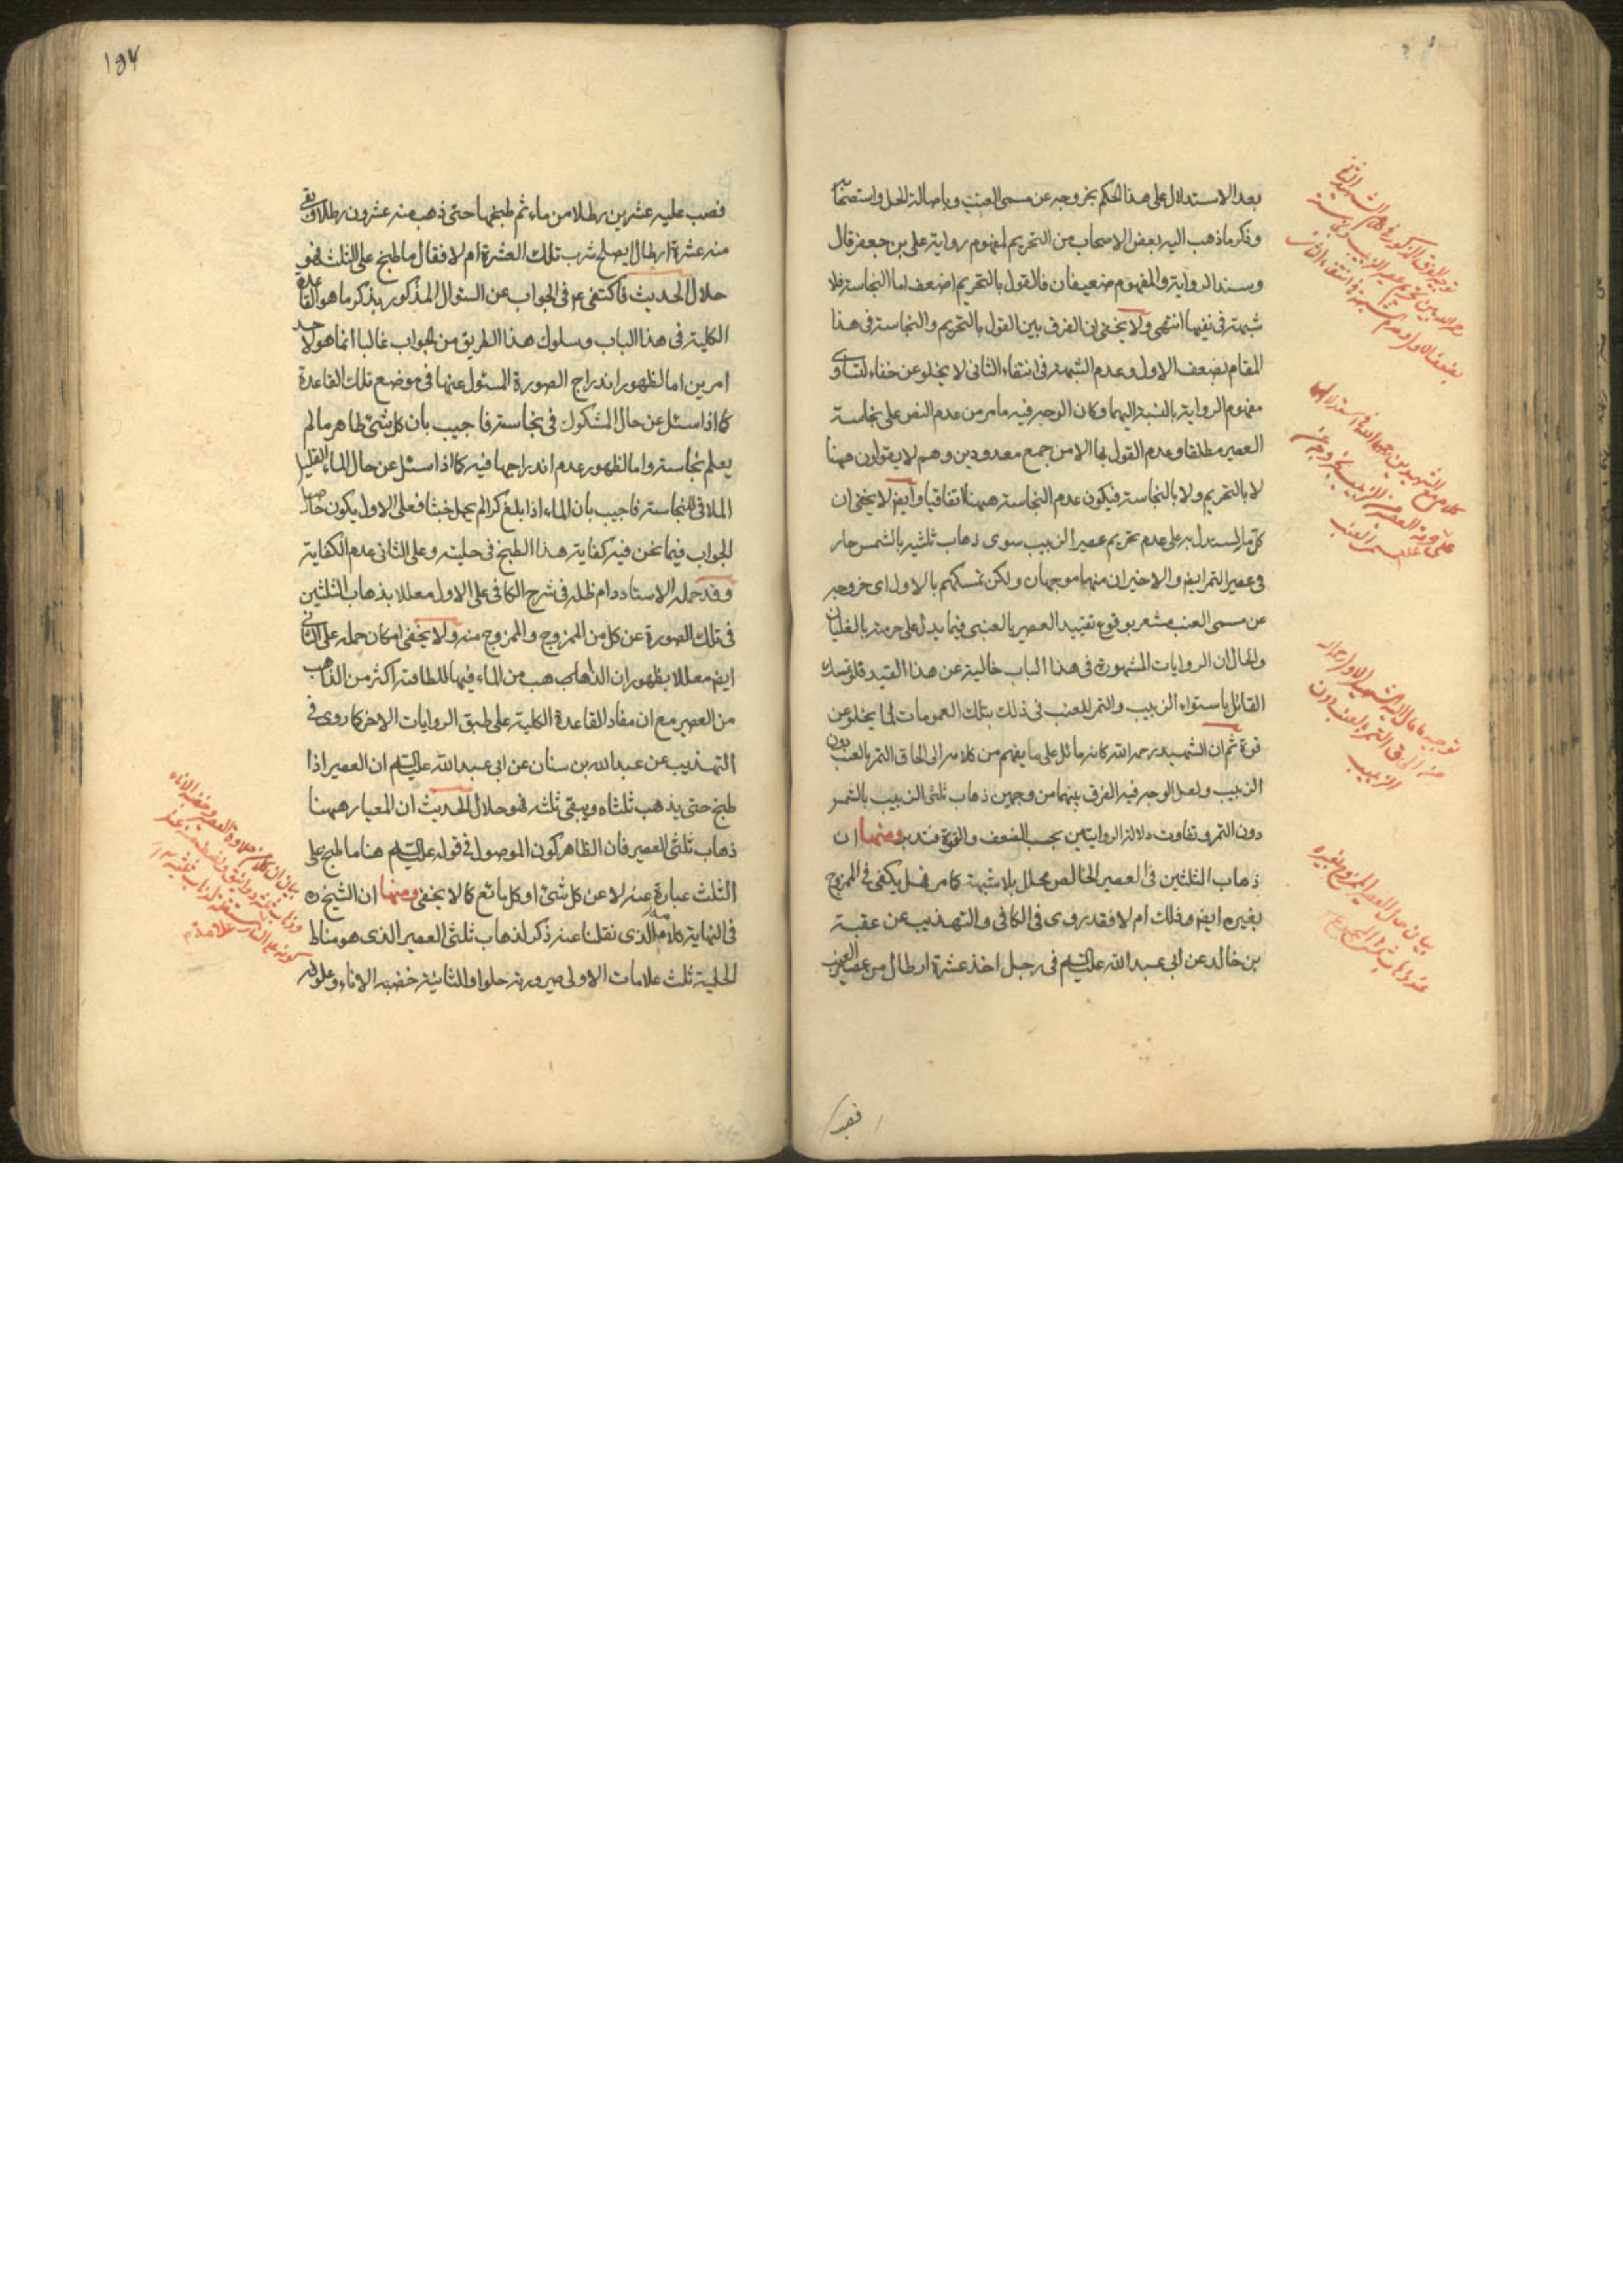 بعد الاستدلال على هذا الحكم بخروجه عن مسمى العنب وباصالة الحل واستصحابها
وذكر ما ذهب اليه بعض الاصحاب من التحريم لمفهوم رواية على بن جعفر قال
وسند الرواية والمفهوم ضعيفان فالقول بالتحريم اضعف اما النجاسة فلا
شبهة فى نفيها انتهى ولا يخفى ان الفرق بين القول بالتحريم والنجاسة فى هذا
المقام بضعف الاول وعدم الشبهة فى انتفاء الثانى لا يخلو عن خفاء لتساوى
مفهوم الرواية بالنسبة اليهما وكان الوجه فيه ما مر من عدم النص على نجاسة
العصير مطلقا وعدم القول بها الا من جمع معدودين وهم لا يقولون ههنا
لا بالتحريم ولا بالنجاسة فيكون عدم النجاسة ههنا اتفاقيا وايض لا يخفى ان
كل ما يستدل به على عدم تحريم عصير الزبيب سوى ذهاب ثلثيه بالشمس جار
فى عصير التمر ايض والاخيران منهما موجهان ولكن تمسكهم بالاول اى خروجه
عن مسمى العنب مشعر بوقوع تقييد العصير بالعنبى فيما يدل على حرمته بالغليان
والحال ان الروايات المشهورة فى هذا الباب خالية عن هذا القيد فلو تمسك
القائل باستواء الزبيب والتمر للعنب فى ذلك بتلك العمومات لما يخلو عن
قوة ثم ان الشهيد رحمه الله كانه مائل على ما يفهم من كلامه الى الحاق التمر بالعنب دون
الزبيب ولعل الوجه فيه الفرق بينهما من وجهين ذهاب ثلثى الزبيب بالشمس
دون التمر وتفاوت دلالة الروايتين بحسب الضعف والقوة فتدبر ومنها ان
ذهاب الثلثين فى العصير الخالص محلل بلا شبهة كما مر فهل يكفى فى الممزوج
بغيره ايض وذلك ام لا فقد روى فى الكافى والتهذيب عن عقبة
بن خالد عن ابى عبد الله عليه السلم فى رجل اخذ عشرة ارطال من عصير العنب
فصب
توجيه الفرق المذكور فى كلام الشهيد الثانى
رحمه الله بين تحريم عصير الزبيب ونجاسته
بضعف الاول وعدم الشبهة فى انتفاء الثانى
بيان حال العصير الممزوج بغيره
۱۹۴
فصب عليه عشرين رطلا من ماء ثم طبخها حتى ذهب منه عشرون رطلا وبقى
منه عشرة ارطال يصلح شرب تلك العشرة ام لا فقال ما طبخ على الثلث فهو
حلال الحديث فاكتفى ع م فى الجواب عن السئوال المذكور بذكر ما هو القاعدة
الكلية فى هذا الباب وسلوك هذا الطريق من الجواب غالبا انما هو لاحد
امرين اما لظهور اندراج الصورة المسئول عنها فى موضع تلك القاعدة
كما اذا سئل عن حال المشكوك فى نجاسته فاجيب بان كل شئ طاهر ما لم
يعلم نجاسته واما لظهور عدم اندراجها فيه كما اذا سئل عن حال الماء القليل
الملاقى للنجاسة فاجيب بان الماء اذا بلغ كرا لم يحمل خبثا فعلى الاول يكون حاصل
الجواب فيما نحن فيه كفاية هذا الطبخ فى حليته وعلى الثانى عدم الكفاية
وقد حمله الاستاد دام ظله فى شرح الكافى على الاول معللا بذهاب الثلثين
فى تلك الصورة عن كل من الممزوج والممزوج منه ولا يخفى امكان حمله على الثانى
ايض معللا بظهور ان الذاهب من الماء فيها للطافته اكثر من الذاهب
من العصير مع ان مفاد القاعدة الكلية على طبق الروايات الاخر كما روى فى
التهذيب عن عبد الله بن سنان عن ابى عبد الله عليه السلم ان العصير اذا
طبخ حتى يذهب ثلثاه ويبقى ثلثه فهو حلال الحديث ان المعيار ههنا
ذهاب ثلثى العصير فان الظاهر كون الموصول فى قوله عليه السلم هنا ما طبخ على
الثلث عبارة عنه لا عن كل شئ او كل مائع كما لا يخفى ومنها ان الشيخ ره
فى النهاية كلامه الذى نقلنا عنه ذكر لذهاب ثلثى العصير الذى هو مناط
الحلية ثلث علامات الاولى صيرورته حلوا والثانية خضبه الاناء وعلوقه